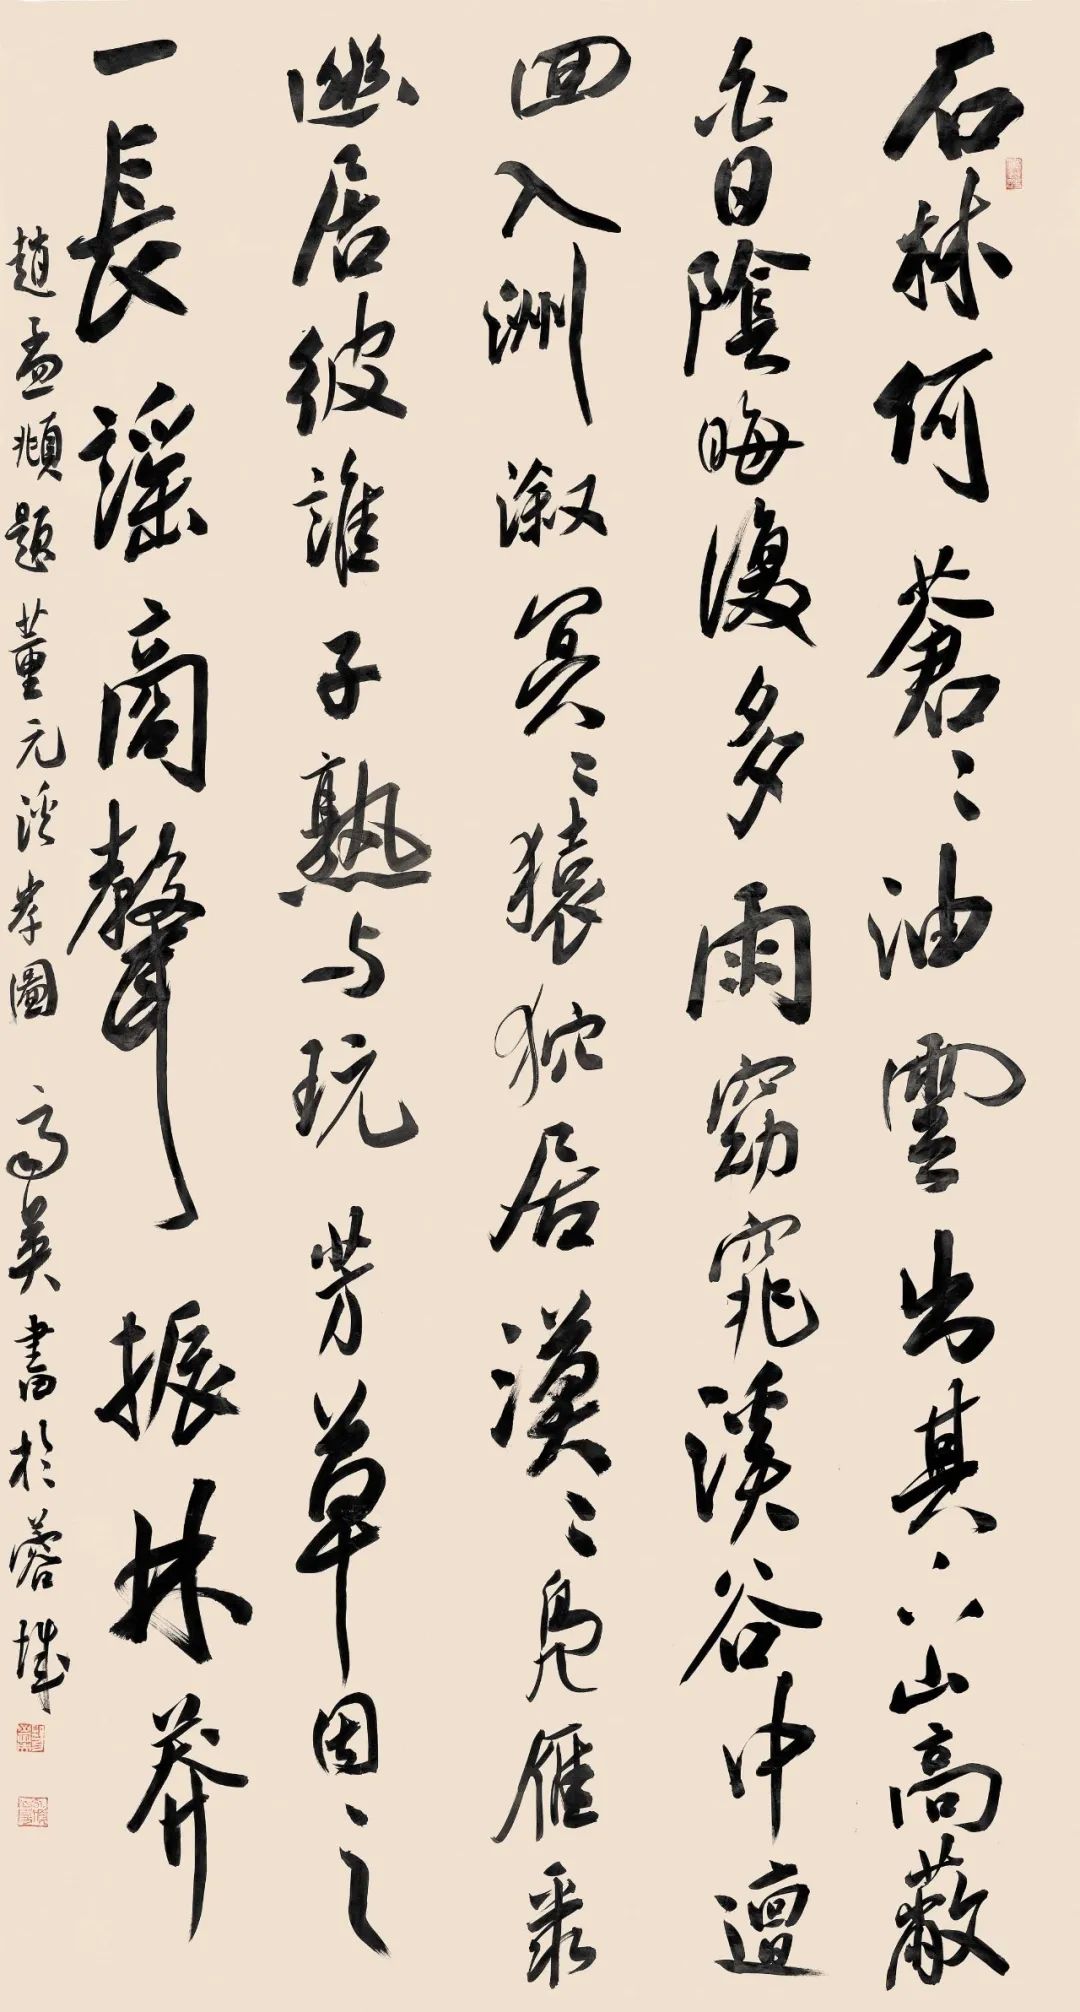 石林何蒼〻油雲出其下山高蔽
白日陰晦復多雨窈窕溪谷中邅
回入洲漵冥〻猿狖居漠〻鳧雁聚
幽居彼誰子熟与玩芳草因之
一長謠商聲振林莽
趙孟頫題董元溪岸圖 高英書於蓉城